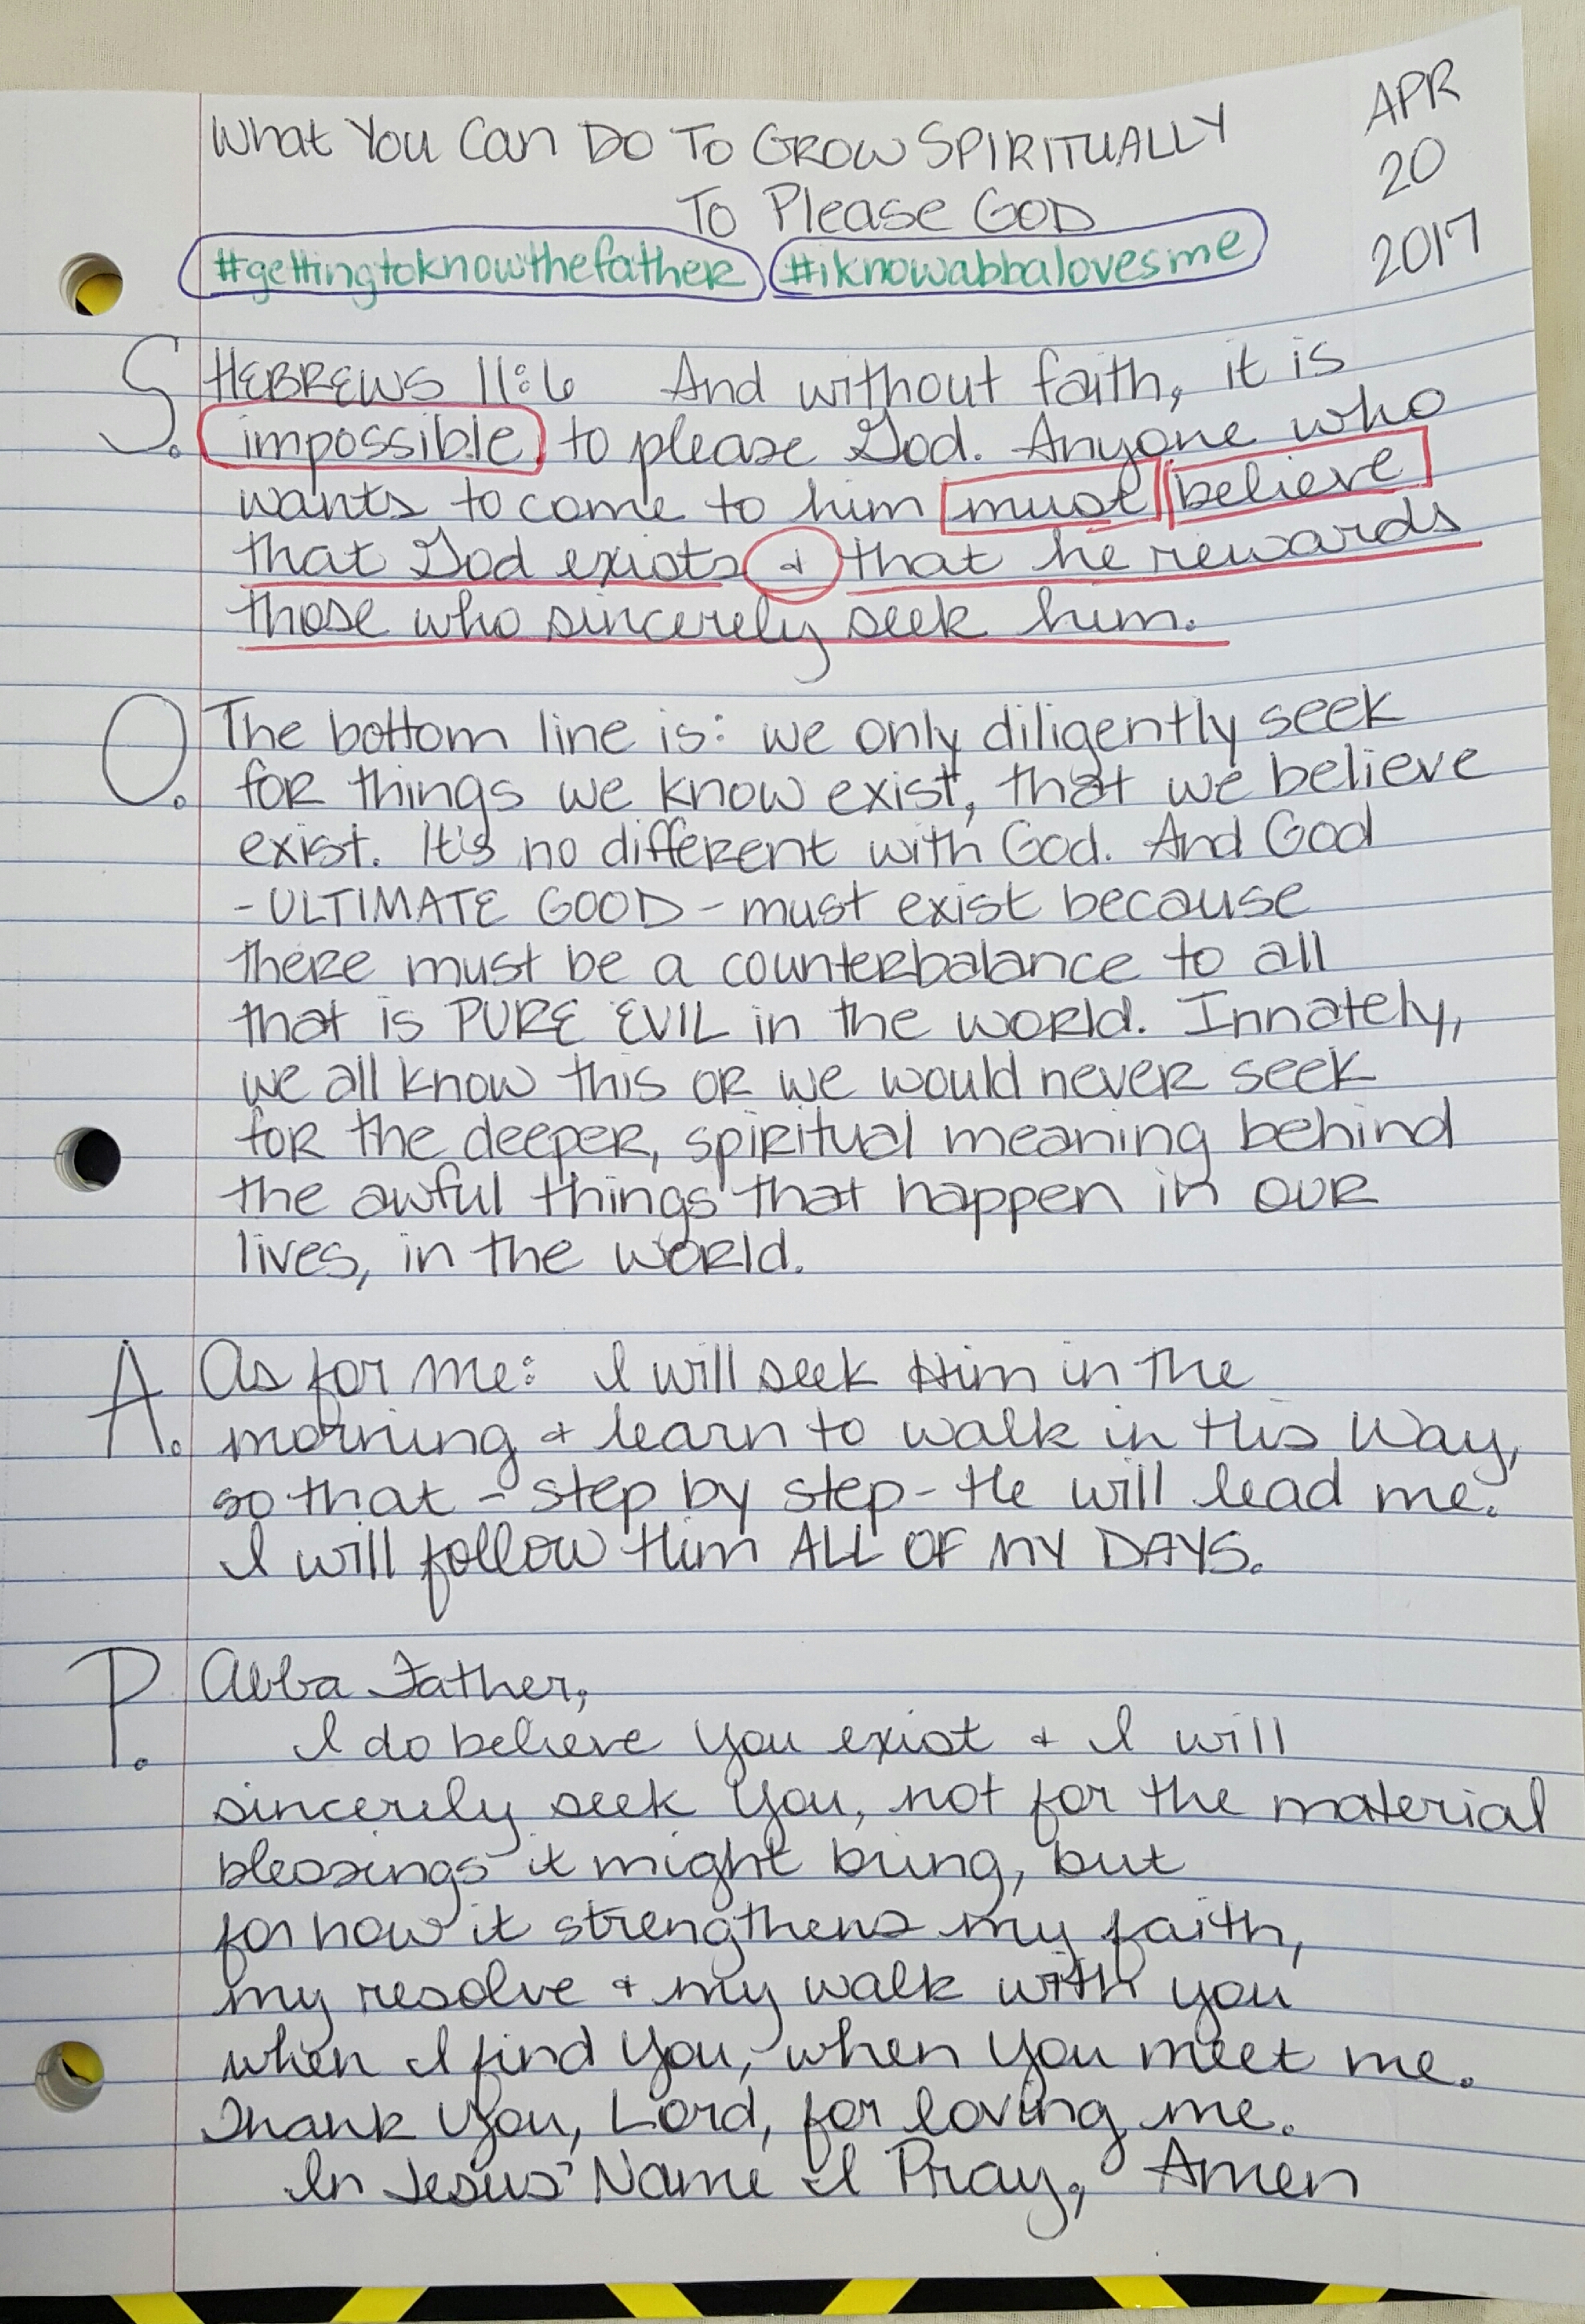 What You Can Do To Grow SPIRITUALLY
To Please GOD
APR
20
2017
#gettingtoknowthefather #iknowabbalovesme
S. HEBREWS 11:6 And without faith, it is
impossible to please God. Anyone who
wants to come to him must believe
that God exists & that he rewards
those who sincerely seek him.
O. The bottom line is: we only diligently seek
for things we know exist, that we believe
exist. It's no different with God. And God
- ULTIMATE GOOD - must exist because
there must be a counterbalance to all
that is PURE EVIL in the world. Innately,
we all know this or we would never seek
for the deeper, spiritual meaning behind
the awful things that happen in our
lives, in the world.
A. As for me: I will seek Him in the
morning & learn to walk in His Way,
so that - step by step - He will lead me.
I will follow Him ALL OF MY DAYS.
P. Abba Father,
I do believe You exist & I will
sincerely seek You, not for the material
blessings it might bring, but
for how it strengthens my faith,
my resolve & my walk with you
when I find You, when You meet me.
Thank You, Lord, for loving me.
In Jesus' Name I Pray, Amen